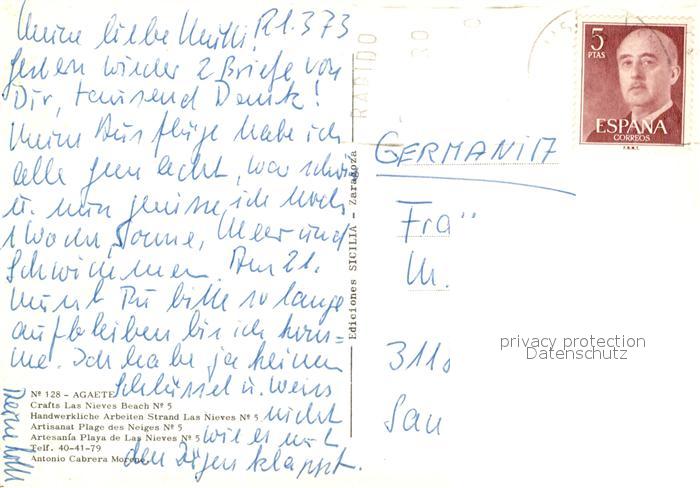 Meine liebe Mutti! 21.3.73
gestern wieder 2 Briefe von
Dir, tausend Dank!
Meine Ausflüge habe ich
alle gemacht, war schön
u. nun genieße ich noch
1 Woche, Sonne, Meer und
Schwimmen. Am 21.
mußt Du bitte so lange
aufbleiben bis ich kom=
me. Ich habe ja keinen
Schlüssel u. weiß
nicht
wie es mit
den Zügen klappt.
Nº 128 - AGAETE
Crafts Las Nieves Beach Nº 5
Handwerkliche Arbeiten Strand Las Nieves Nº 5
Artisanat Plage des Neiges Nº 5
Artesanía Playa de Las Nieves Nº 5
Telf. 40-41-79
Antonio Cabrera Moreno
Ediciones SICILIA - Zaragoza
RAPIDO
5
PTAS
ESPAÑA
CORREOS
F.N.M.T.
GERMANIA
Frau
M.
311
privacy protection
Datenschutz